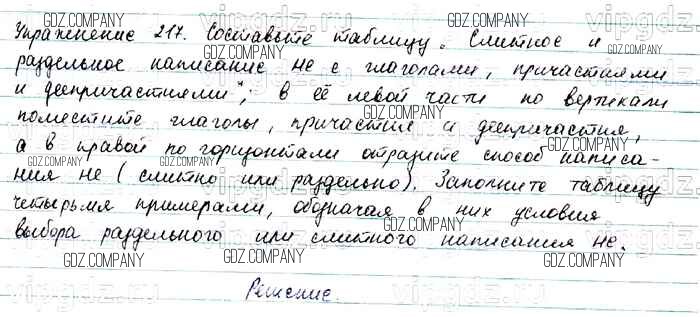 Упражнение 217. Составьте таблицу „Слитное и
раздельное написание не с глаголами, причастиями
и деепричастиями", в её левой части по вертикали
поместите глаголы, причастия и деепричастия,
а в правой по горизонтали отразите способ написа-
ния не (слитно или раздельно). Заполните таблицу
четырьмя примерами, обозначая в них условия
выбора раздельного или слитного написания не.
Решение.
GDZ.COMPANY GDZ.COMPANY GDZ.COMPANY
vipgdz.ru vipgdz.ru